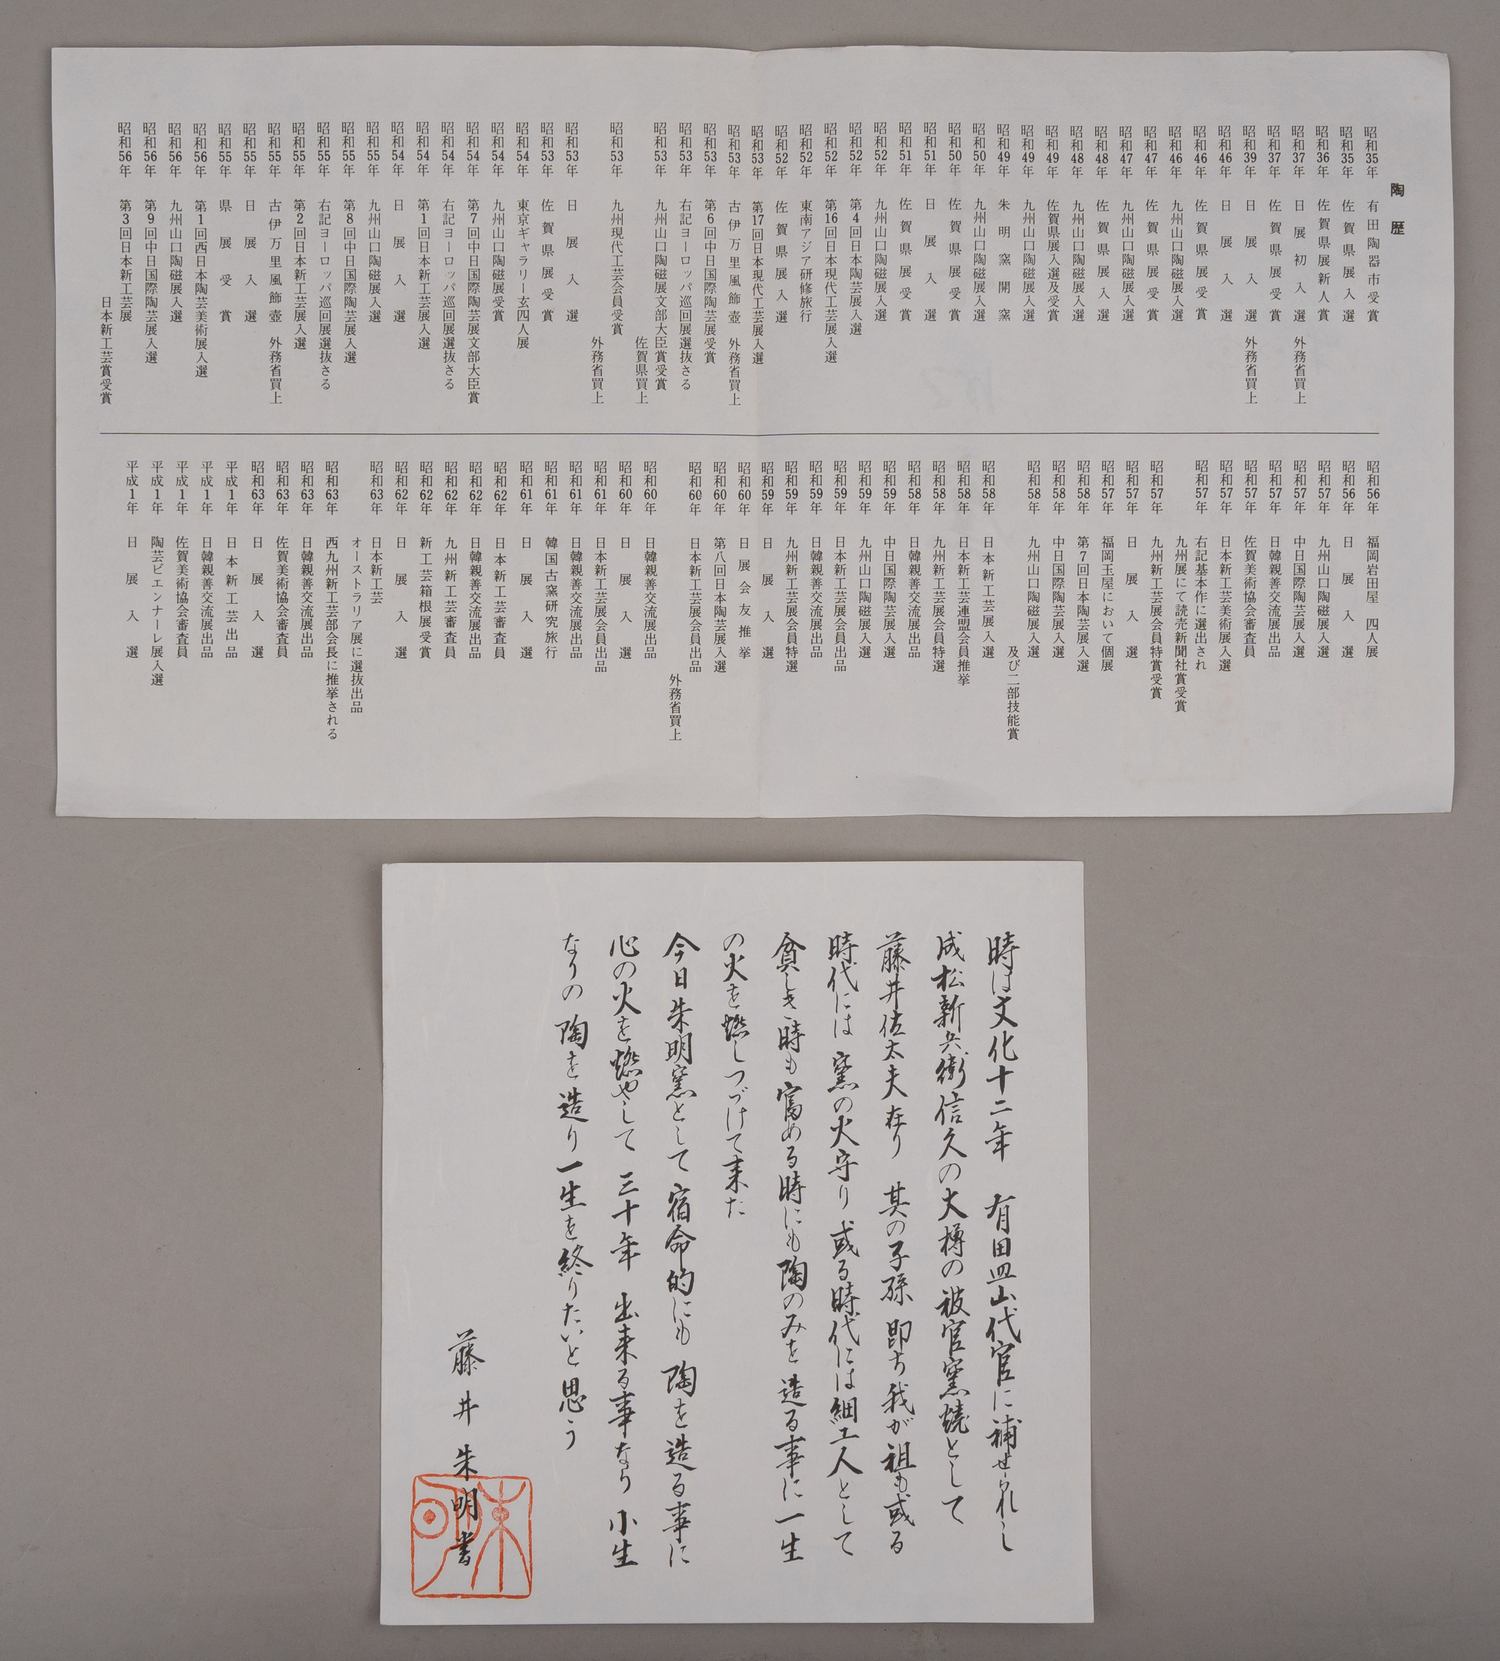 陶歴
昭和35年 有田陶器市受賞
昭和35年 佐賀県展入選
昭和36年 佐賀県展新人賞
昭和37年 日展初入選 外務省買上
昭和37年 佐賀県展受賞
昭和39年 日展入選 外務省買上
昭和46年 日展入選
昭和46年 佐賀県展受賞
昭和46年 九州山口陶磁展入選
昭和47年 佐賀県展受賞
昭和47年 九州山口陶磁展入選
昭和48年 佐賀県展入選
昭和48年 九州山口陶磁展入選
昭和49年 佐賀県展入選及受賞
昭和49年 九州山口陶磁展入選
昭和49年 朱明窯開窯
昭和50年 九州山口陶磁展入選
昭和50年 佐賀県展受賞
昭和51年 日展入選
昭和51年 佐賀県展受賞
昭和52年 九州山口陶磁展入選
昭和52年 第4回日本陶芸展入選
昭和52年 第16回日本現代工芸展入選
昭和52年 東南アジア研修旅行
昭和52年 佐賀県展入選
昭和53年 第17回日本現代工芸展入選
昭和53年 古伊万里風飾壺 外務省買上
昭和53年 第6回中日国際陶芸展受賞
昭和53年 右記ヨーロッパ巡回展選抜さる
昭和53年 九州山口陶磁展文部大臣賞受賞
佐賀県買上
昭和53年 九州現代工芸会員受賞
外務省買上
昭和53年 日展入選
昭和53年 佐賀県展受賞
昭和54年 東京ギャラリー玄四人展
昭和54年 九州山口陶磁展受賞
昭和54年 第7回中日国際陶芸展文部大臣賞
昭和54年 右記ヨーロッパ巡回展選抜さる
昭和54年 第1回日本新工芸展入選
昭和54年 日展入選
昭和55年 九州山口陶磁展入選
昭和55年 第8回中日国際陶芸展入選
昭和55年 右記ヨーロッパ巡回展選抜さる
昭和55年 第2回日本新工芸展入選
昭和55年 古伊万里風飾壺 外務省買上
昭和55年 日展入選
昭和55年 県展受賞
昭和56年 第1回西日本陶芸美術展入選
昭和56年 九州山口陶磁展入選
昭和56年 第9回中日国際陶芸展入選
昭和56年 第3回日本新工芸展
日本新工芸賞受賞
昭和56年 福岡岩田屋 四人展
昭和56年 日展入選
昭和57年 九州山口陶磁展入選
昭和57年 中日国際陶芸展入選
昭和57年 日韓親善交流展出品
昭和57年 佐賀美術協会審査員
昭和57年 日本新工芸美術展入選
昭和57年 右記基本作に選出され
九州展にて読売新聞社賞受賞
昭和57年 九州新工芸展会員特賞受賞
昭和57年 日展入選
昭和57年 福岡玉屋において個展
昭和58年 第7回日本陶芸展入選
昭和58年 中日国際陶芸展入選
昭和58年 九州山口陶磁展入選
及び二部技能賞
昭和58年 日本新工芸展入選
昭和58年 日本新工芸連盟会員推挙
昭和58年 九州新工芸展会員特選
昭和58年 日韓親善交流展出品
昭和59年 中日国際陶芸展入選
昭和59年 九州山口陶磁展入選
昭和59年 日本新工芸展会員出品
昭和59年 日韓親善交流展出品
昭和59年 九州新工芸展会員特選
昭和59年 日展入選
昭和60年 日展会友推挙
昭和60年 第八回日本陶芸展入選
昭和60年 日本新工芸展会員出品
外務省買上
昭和60年 日韓親善交流展出品
昭和60年 日展入選
昭和61年 日本新工芸展会員出品
昭和61年 日韓親善交流展出品
昭和61年 韓国古窯研究旅行
昭和61年 日展入選
昭和62年 日本新工芸審査員
昭和62年 日韓親善交流展出品
昭和62年 九州新工芸審査員
昭和62年 新工芸箱根展受賞
昭和62年 日展入選
昭和63年 日本新工芸
オーストラリア展に選抜出品
昭和63年 西九州新工芸部会長に推挙される
昭和63年 日韓親善交流展出品
昭和63年 佐賀美術協会審査員
昭和63年 日展入選
平成1年 日本新工芸出品
平成1年 日韓親善交流展出品
平成1年 佐賀美術協会審査員
平成1年 陶芸ビエンナーレ展入選
平成1年 日展入選
時は文化十二年 有田皿山代官に補せられし
成松新兵衛信久の大樽の被官窯焼として
藤井佐太夫在り 其の子孫 即ち我が祖も或る
時代には 窯の火守り 或る時代には細工人として
貧しき時も富める時にも陶のみを造る事に一生
の火を燃しつづけて来た
今日朱明窯として 宿命的にも 陶を造る事に
心の火を燃やして 三十年 出来る事なり 小生
なりの陶を造り一生を終りたいと思う
藤井朱明書
朱明